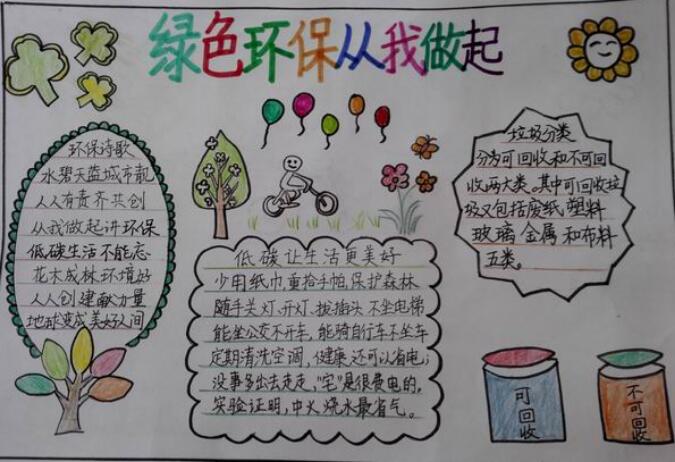 绿色环保从我做起
环保诗歌
水碧天蓝城市靓
人人有责齐共创
从我做起讲环保
低碳生活不能忘
花木成林环境好
人人创建献力量
地球变成美好人间
低碳让生活更美好
少用纸巾,重拾手帕,保护森林
随手关灯、开灯、拔插头,不坐电梯
能坐公交不开车,能骑自行车不坐车
定期清洗空调,健康还可以省电;
没事多出去走走,"宅"是很费电的,
实验证明,中火烧水最省气。
垃圾分类
分为可回收和不可回
收两大类。其中可回收垃
圾又包括废纸、塑料
玻璃 金属 和布料
五类。
可回收
不可回收